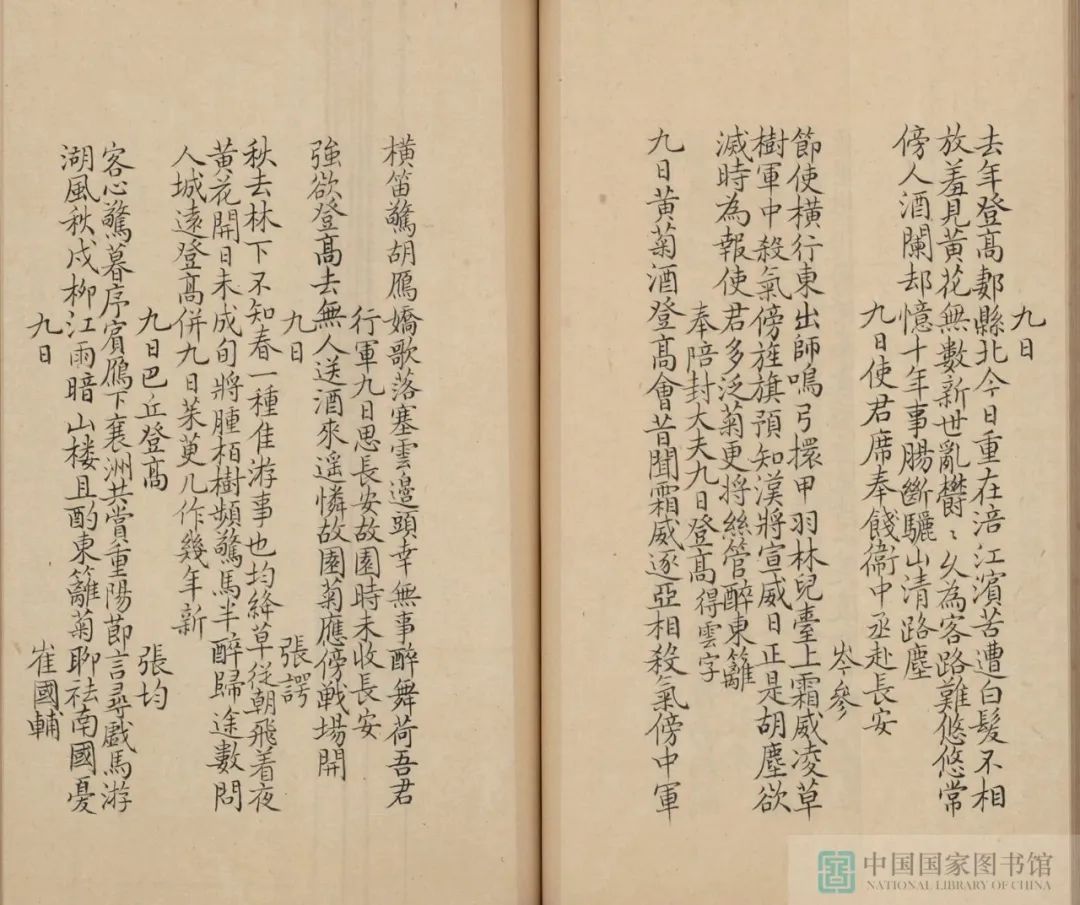 九日
去年登髙郪縣北今日重在涪江濱苦遭白髮不相
放羞見黄花無數新世亂欝〻久為客路難悠悠常
傍人酒闌却憶十年事腸斷驪山清路塵
九日使君席奉餞衞中丞赴長安
岑參
節使橫行東出師鳴弓擐甲羽林兒臺上霜威凌草
樹軍中殺氣傍旌旗預知漢將宣威日正是胡塵欲
滅時為報使君多泛菊更將絲管醉東籬
奉陪封大夫九日登髙得雲字
九日黄菊酒登髙會昔聞霜威逐亞相殺氣傍中軍
橫笛驚胡鴈嬌歌落塞雲邊頭幸無事醉舞荷吾君
行軍九日思長安故園時未收長安
強欲登髙去無人送酒來遥憐故園菊應傍戰場開
九日 張諤
秋去林下不知春一種佳游事也均絳草從朝飛着夜
黄花開日未成旬將腫栢樹頻驚馬半醉歸途數問
人城遠登髙併九日茱萸凡作幾年新
九日巴丘登髙 張均
客心驚暮序賓鴈下襄洲共賞重陽節言尋戲馬游
湖風秋戍柳江雨暗山楼且酌東籬菊聊祛南國憂
九日 崔國輔
中国国家图书馆
NATIONAL LIBRARY OF CHINA